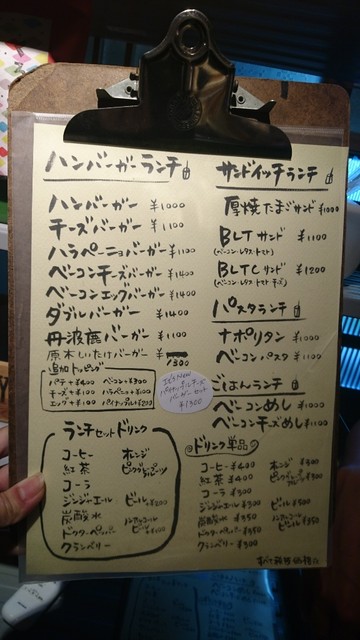 ハンバーガーランチ
ハンバーガー ¥1000
チーズバーガー ¥1100
ハラペーニョバーガー ¥1100
ベーコンチーズバーガー ¥1400
ベーコンエッグバーガー ¥1400
ダブルバーガー ¥1400
丹波鹿バーガー ¥1100
原木しいたけバーガー ¥1300
追加トッピング
パテ +¥400 ベーコン +¥300
チーズ +¥100 ハラペーニョ +¥100
エッグ +¥100 パイナップル +¥200
ランチセットドリンク
コーヒー オレンジ
紅茶 ピンクグレープフルーツ
コーラ
ジンジャーエール ビール +¥200
炭酸水 ノンアルコールビール
ドクターペッパー
クランベリー
サンドイッチランチ
厚焼たまごサンド ¥1000
BLTサンド ¥1100
(ベーコン・レタス・トマト)
BLTCサンド ¥1200
(ベーコン・レタス・トマト チーズ)
パスタランチ
ナポリタン ¥1000
ベーコンパスタ ¥1100
ごはんランチ
ベーコンめし ¥1000
ベーコンチーズめし ¥1100
It's New
パイナップルチーズ
バーガーセット
¥1300
ドリンク単品
コーヒー ¥400 オレンジ
紅茶 ¥400 ピンクグレープ
コーラ ¥300
ジンジャエール ビール ¥500
炭酸水 ノンアルコールビール ¥350
ドクターペッパー ¥350
クランベリー ¥300